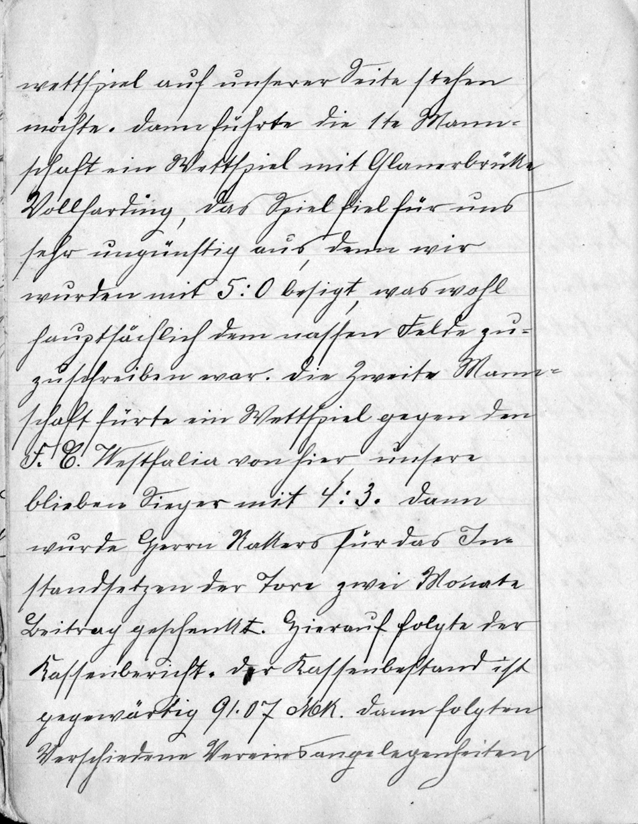 wettspiel auf unserer Seite stehen
möchte. Dann führte die 1te Mann-
schaft ein Wettspiel mit Glanerbrücke
Vollharding, das Spiel fiel für uns
sehr ungünstig aus, denn wir
wurden mit 5:0 besigt, was wohl
hauptsächlich dem nassen Felde zu-
zuschreiben war. Die Zweite Mann-
schaft fürte ein Wettspiel gegen den
F. C. Westfalia von hier, unsere
blieben Sieger mit 4:3. Dann
wurde Herrn für das In-
standsetzen der Tore zwei Monate
Beitrag geschenkt. Hierauf folgte der
Kassenbericht. Der Kassenbestand ist
gegenwärtig 91.07 Mk. Dann folgten
Verschiedene Vereinsangelegenheiten